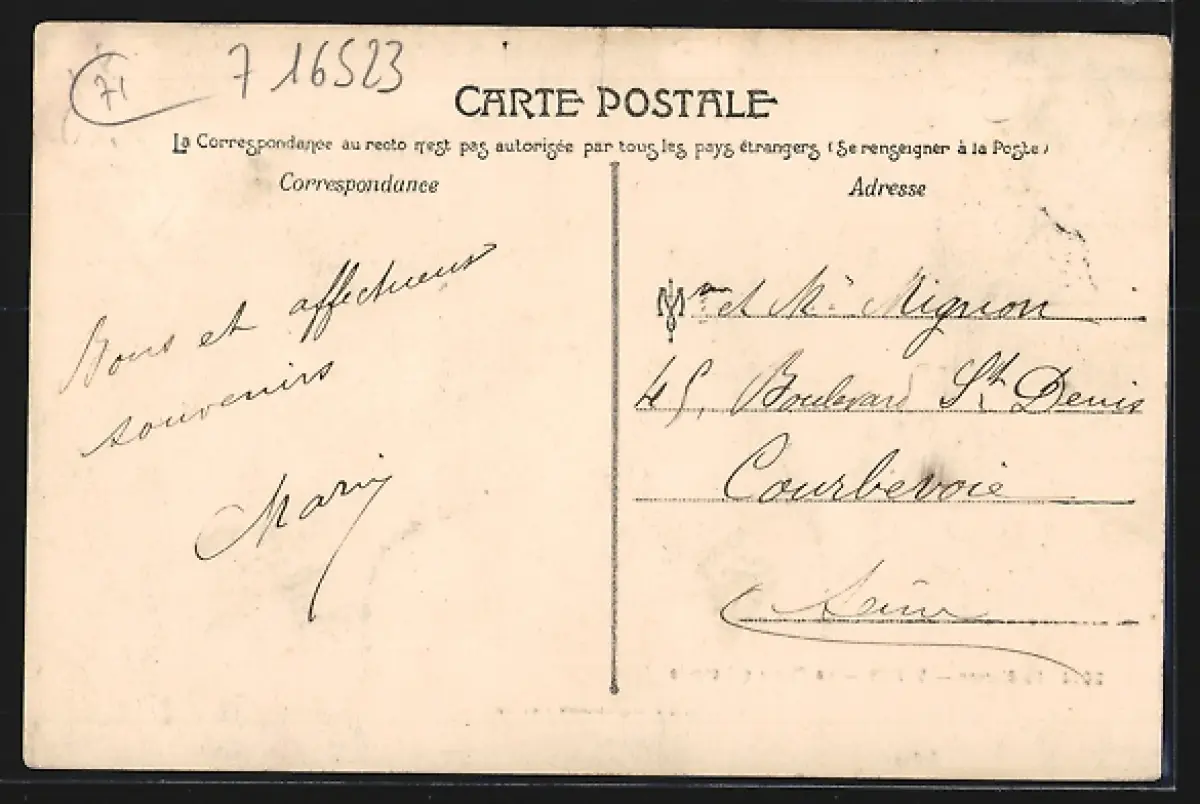 71
7 16523
CARTE POSTALE
La Correspondance au recto n'est pas autorisée par tous les pays étrangers (Se renseigner à la Poste)
Correspondance
Adresse
Bons et affectueux
souvenirs
Marie
Mme et Mr Mignon
45, Boulevard St Denis
Courbevoie
Seine